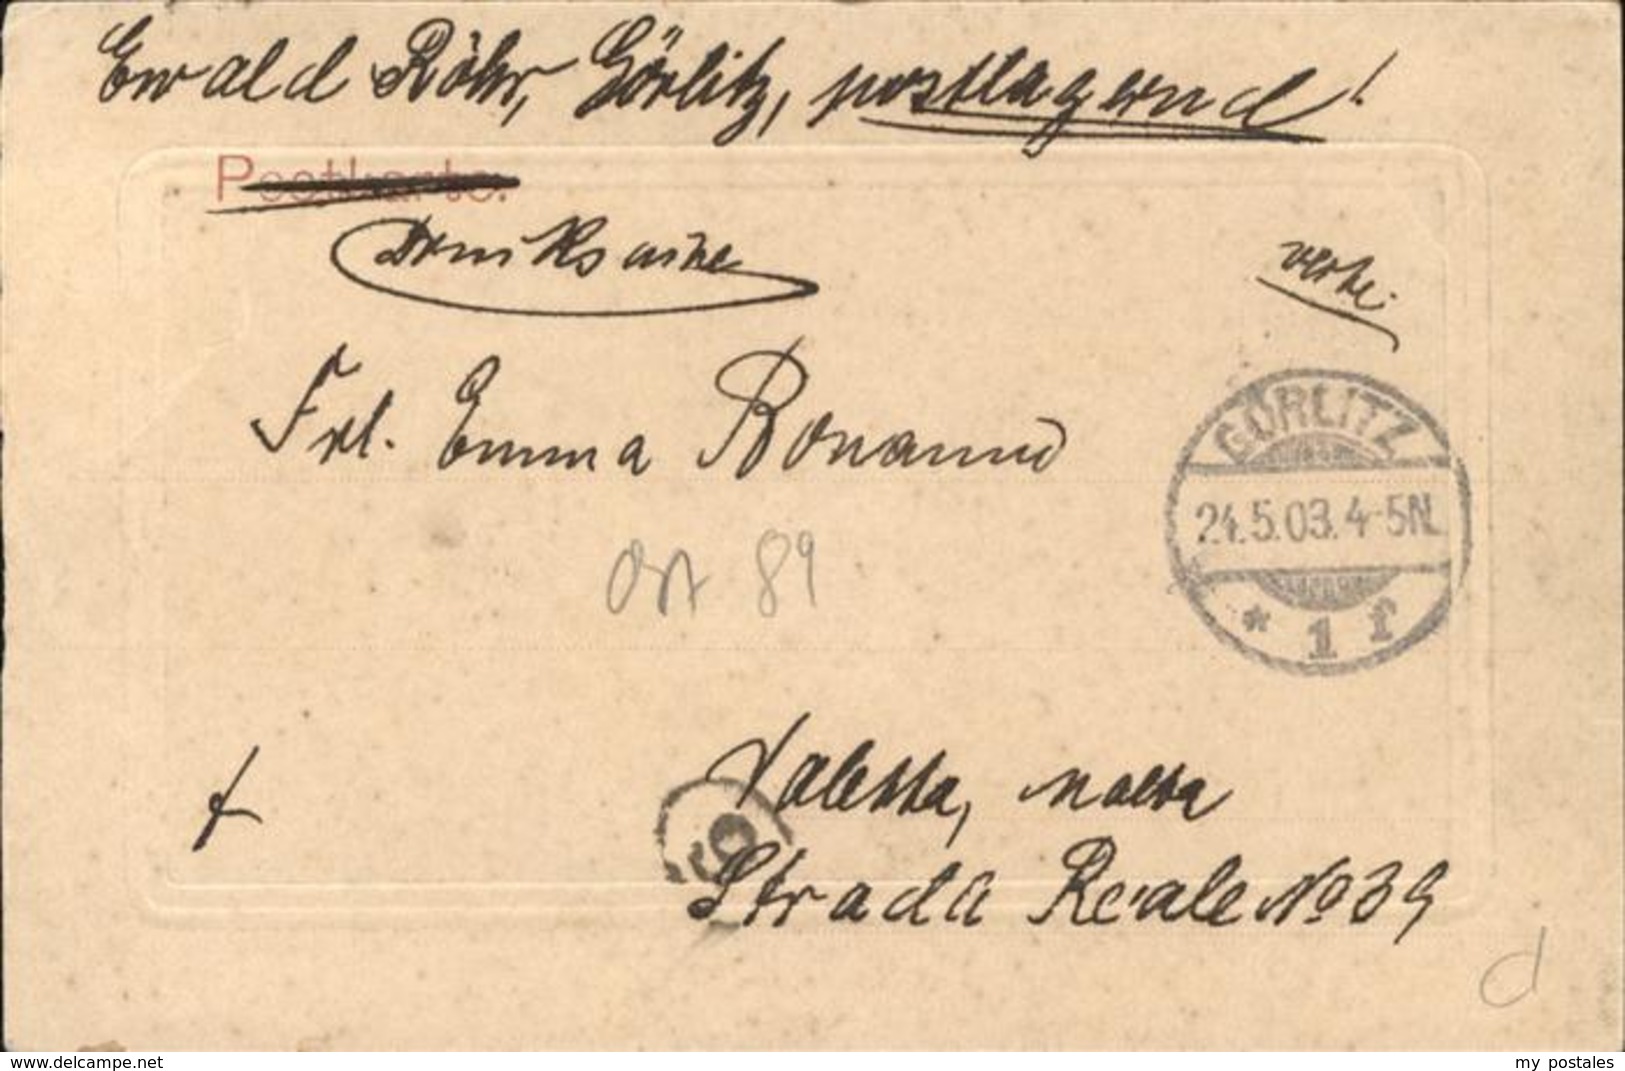 Ewald Röhr, Görlitz, postlagernd!
Postkarte.
Drucksache
Frl. Emma Bonanno
GÖRLITZ
24.5.03.4-5N.
* 1 f
89
Valetta, Malta
Strada Reale No 39
d
www.delcampe.net
my postales